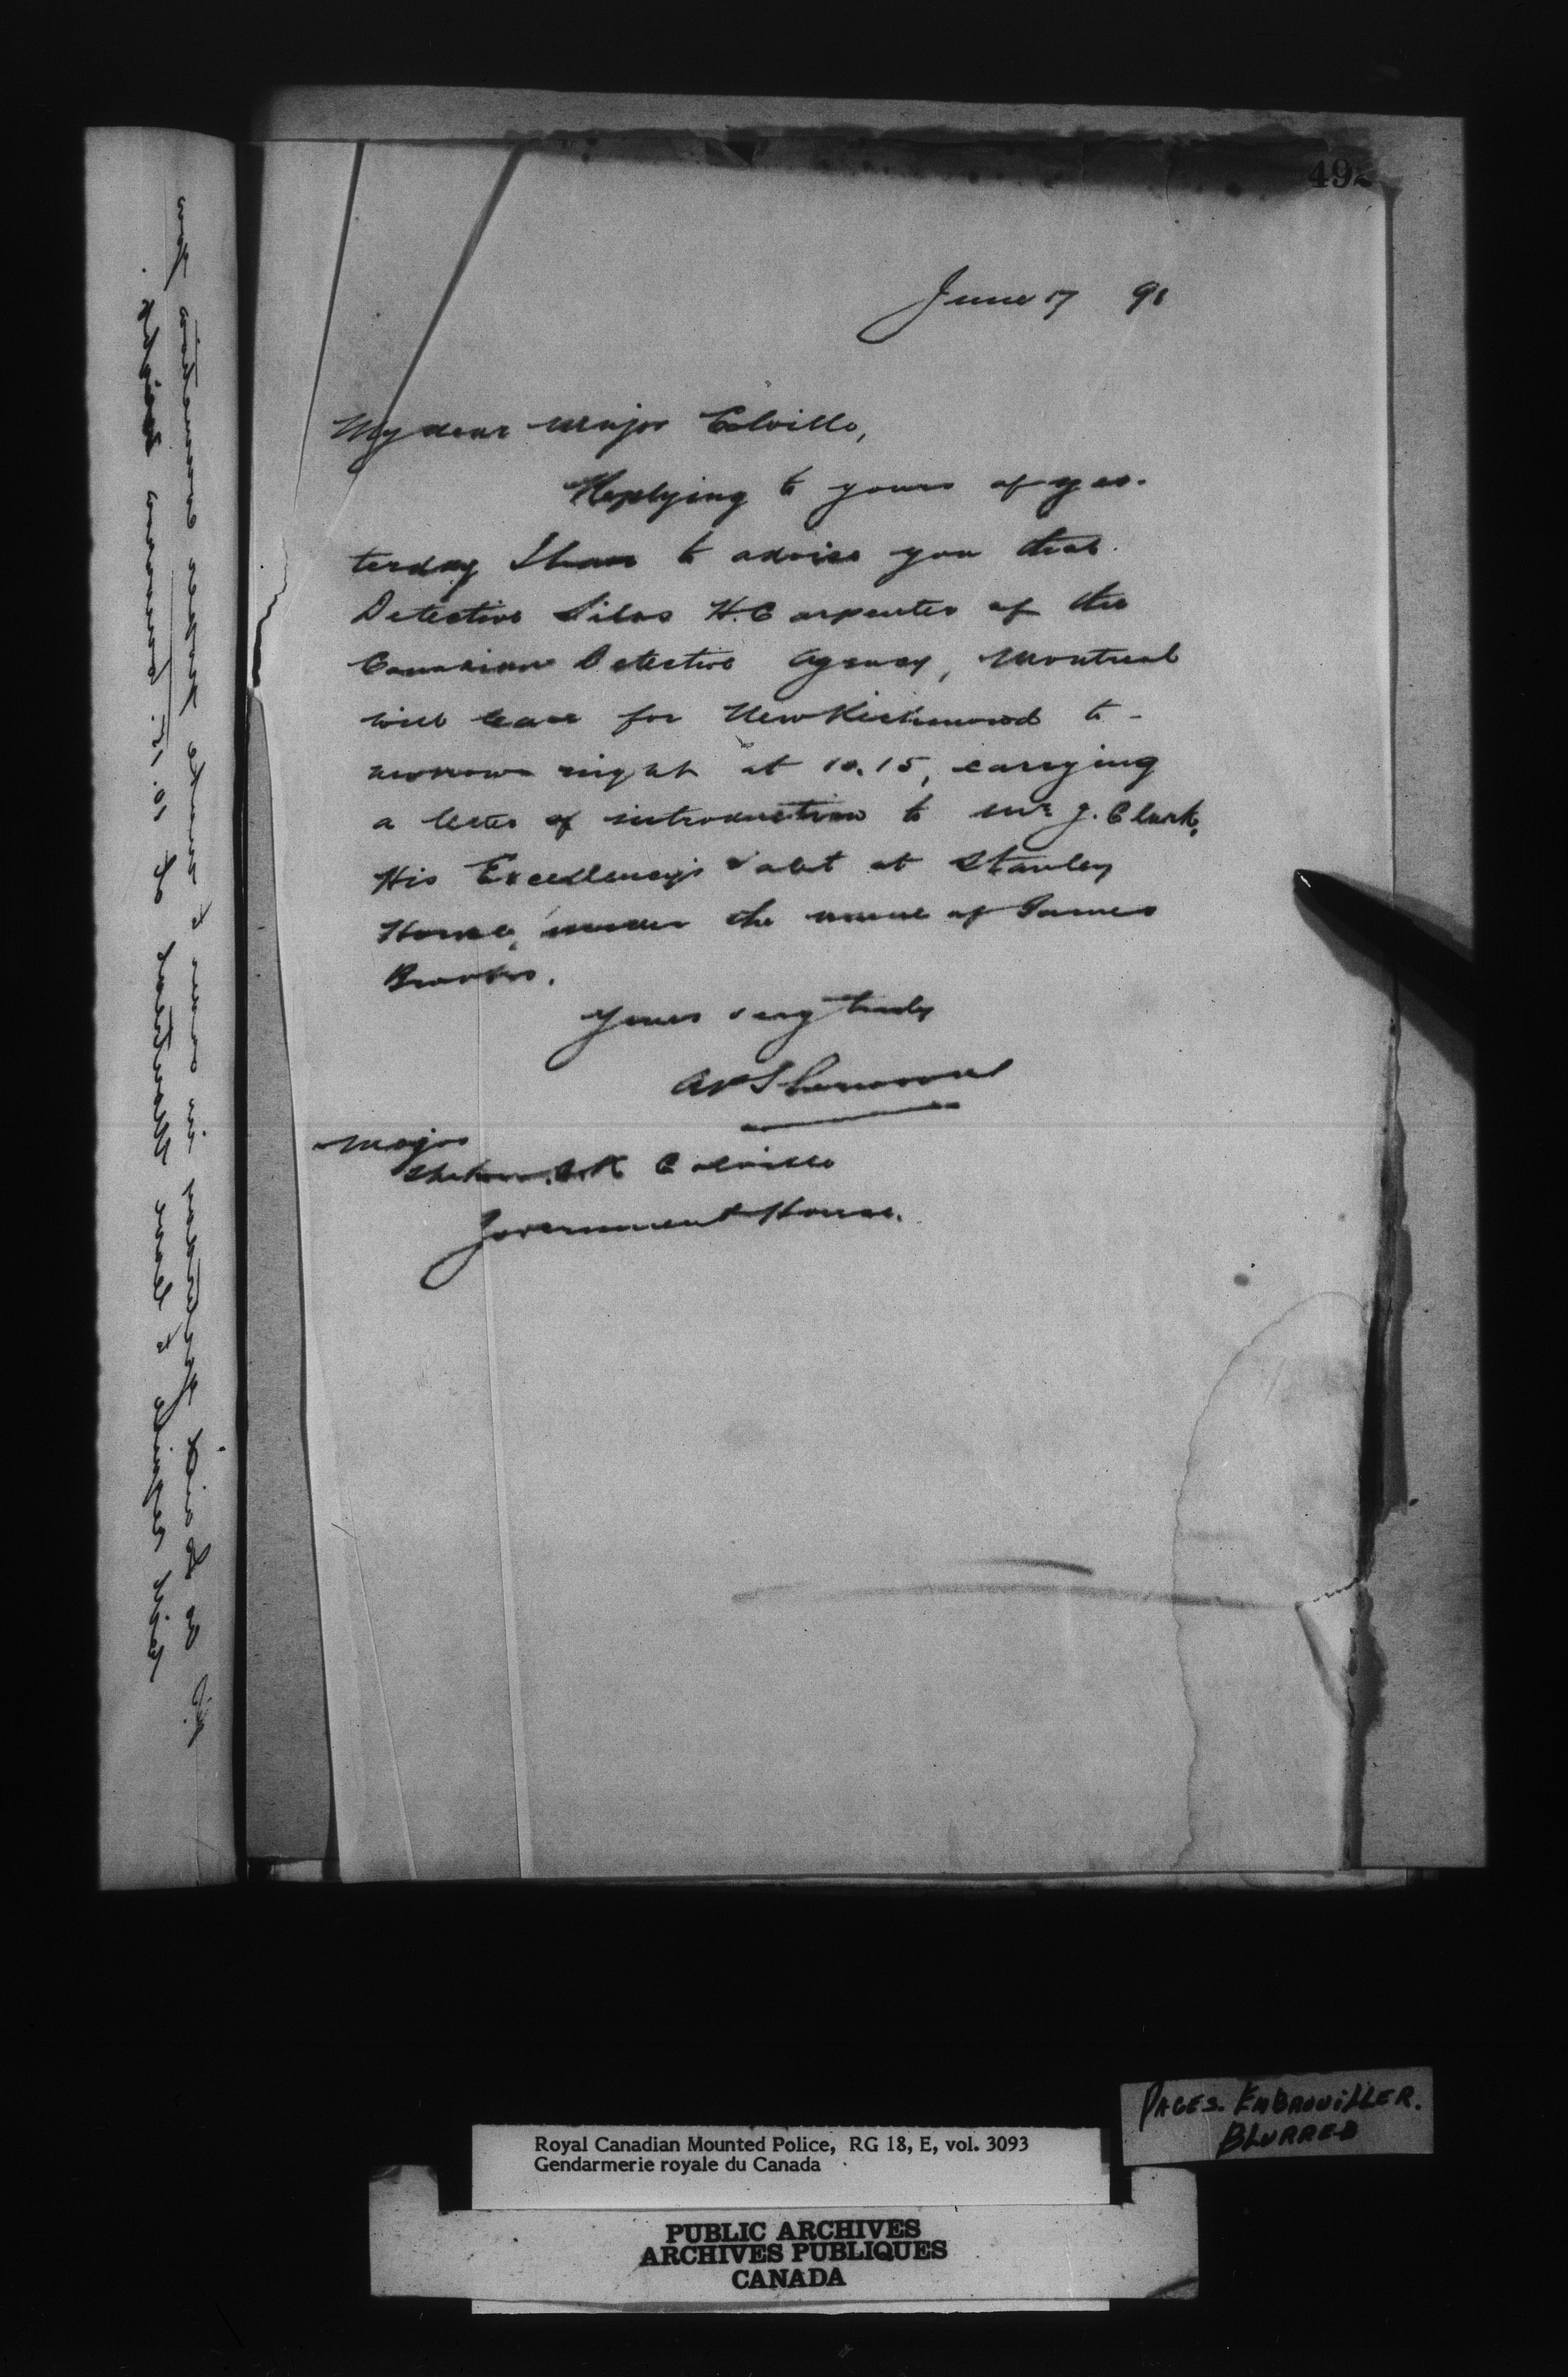 492
June 17 91
My dear Major Colville,
Replying to yours of yes-
terday I have to advise you that
Detective Silas H. Carpenter of the
Canadian Detective Agency, Montreal
will leave for New Richmond to-
morrow night at 10.15, carrying
a letter of introduction to Mr J. Clark,
His Excellency's valet at Stanley
House, under the name of James
Brooks.
Yours very truly
AP Sherwood
Major
Colville
Government House.
Royal Canadian Mounted Police, RG 18, E, vol. 3093
Gendarmerie royale du Canada
PAGES EMBROUILLER.
BLURRED
PUBLIC ARCHIVES
ARCHIVES PUBLIQUES
CANADA